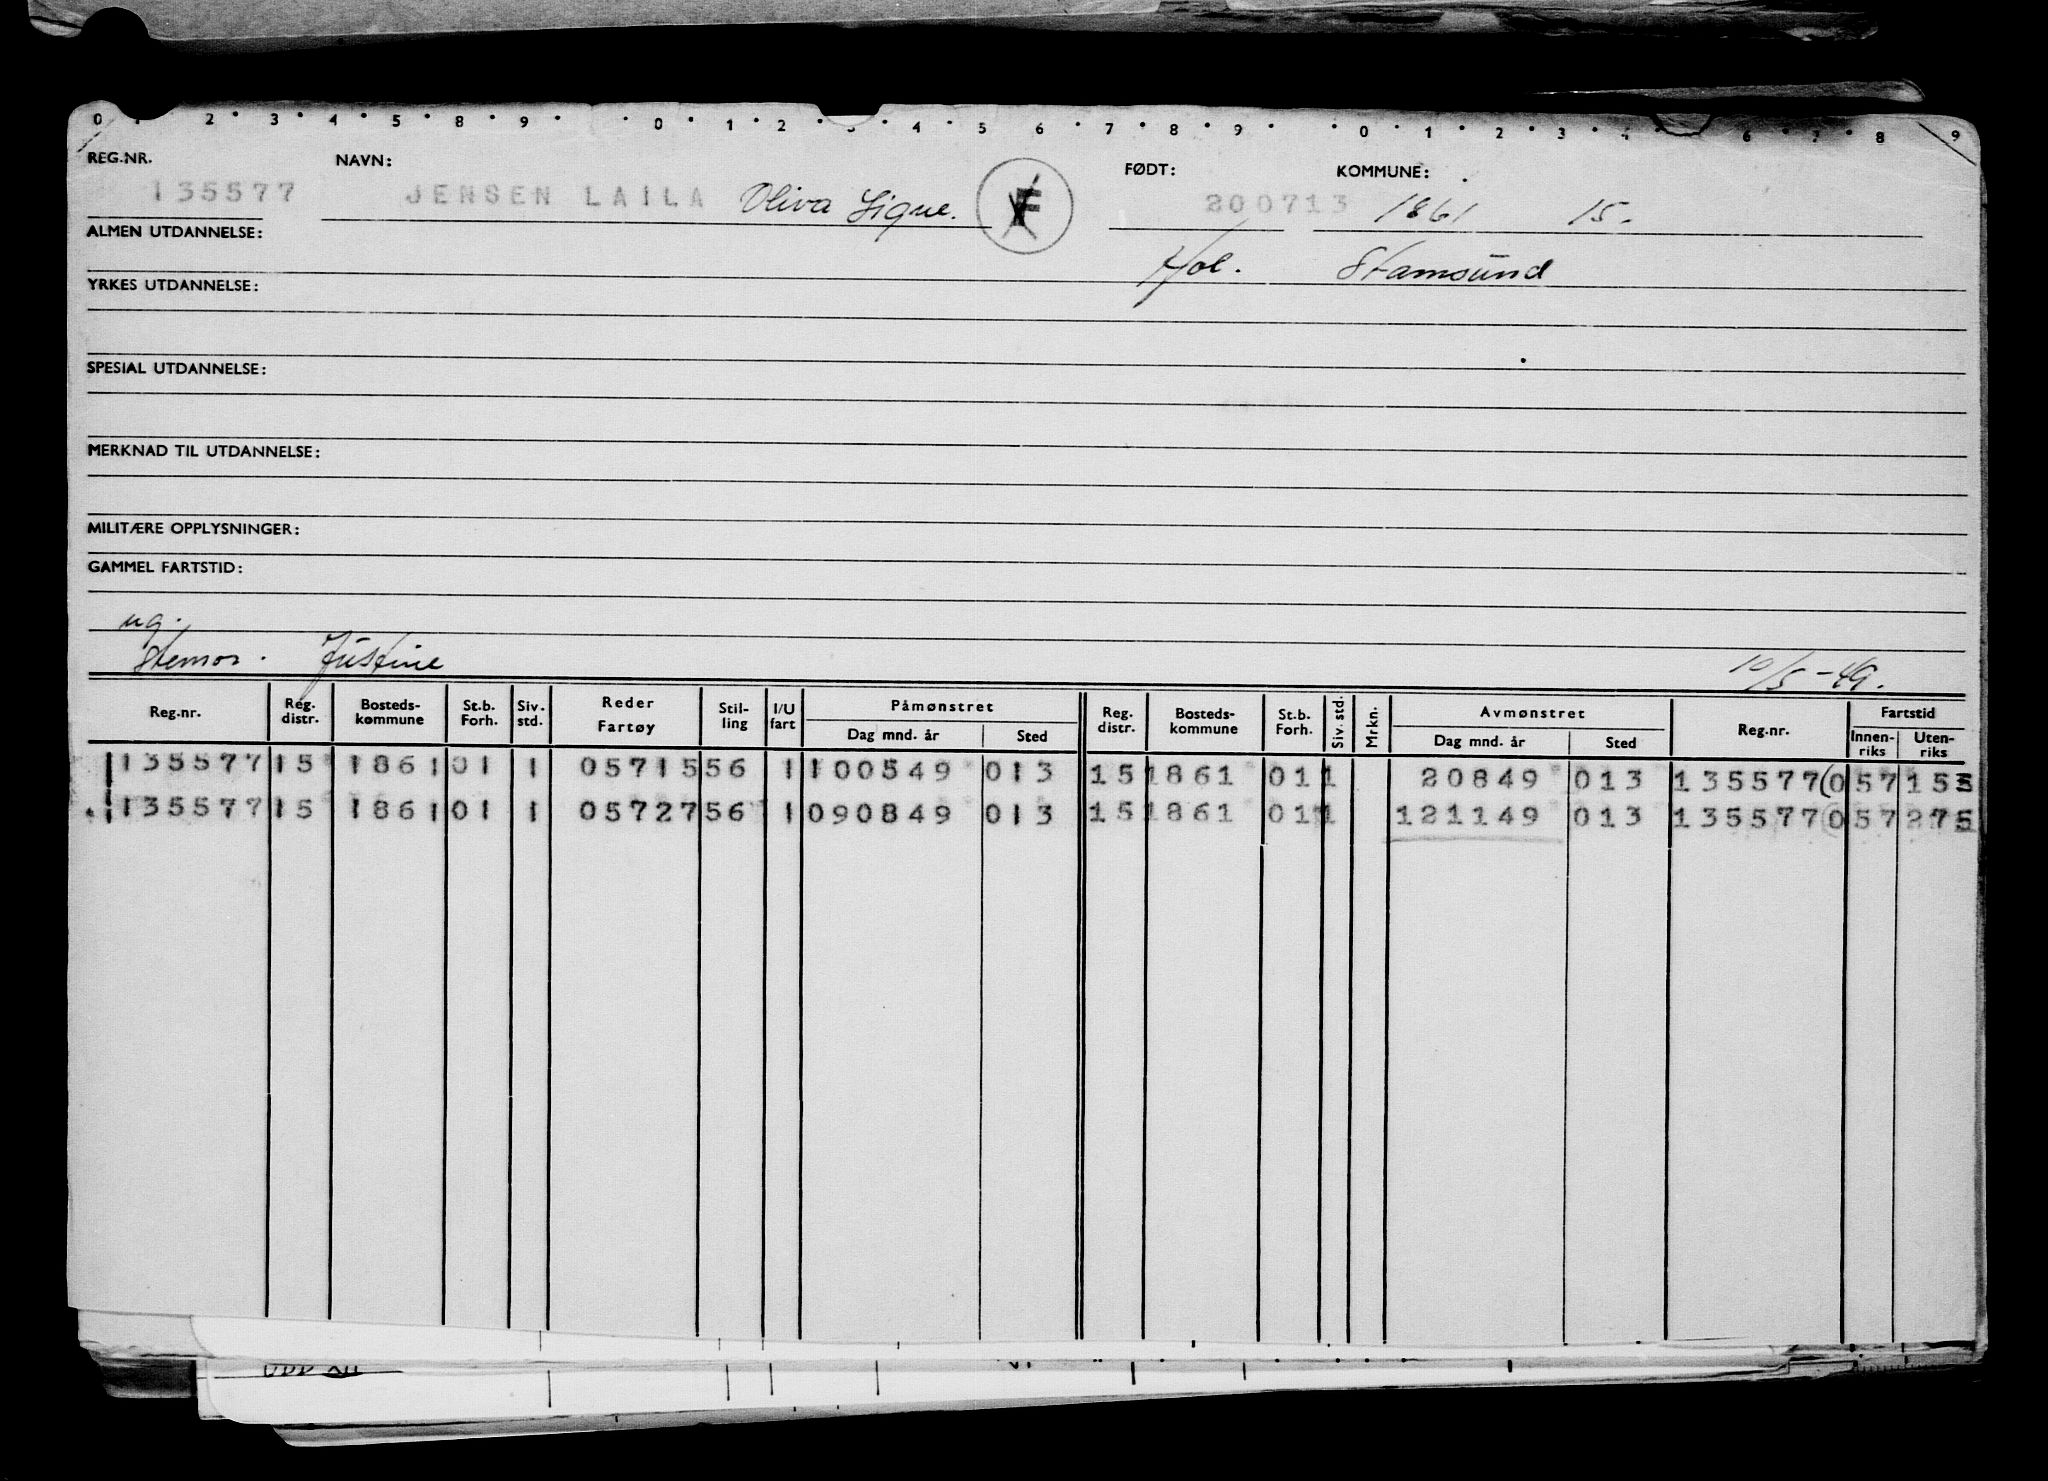 0 2 3 4 5 8 9 0 1 2 3 4 5 6 7 8 9 0 1 2 3 4 6 7 8 9
REG.NR. NAVN: FØDT: KOMMUNE:
135577 JENSEN LAILA Oliva Signe. F 200713 1861 15.
ALMEN UTDANNELSE: Hol. Stamsund
YRKES UTDANNELSE:
SPESIAL UTDANNELSE:
MERKNAD TIL UTDANNELSE:
MILITÆRE OPPLYSNINGER:
GAMMEL FARTSTID:
ug.
Stemor. Justine 10/5-49.
Reg.nr. Reg. distr. Bosteds-kommune St.b. Forh. Siv. std. Reder Fartøy Stil-ling I/U fart Påmønstret Dag mnd. år Sted Reg. distr. Bosteds-kommune St.b. Forh. Siv. std. Mrkn. Avmønstret Dag mnd. år Sted Reg.nr. Fartstid Innen-riks Uten-riks
135577 15 1861 01 1 05715 56 1 100549 013 15 1861 01 1 20849 013 135577 (0 57 155
135577 15 1861 01 1 05727 56 1 090849 013 15 1861 01 1 121149 013 135577 (0 57 275